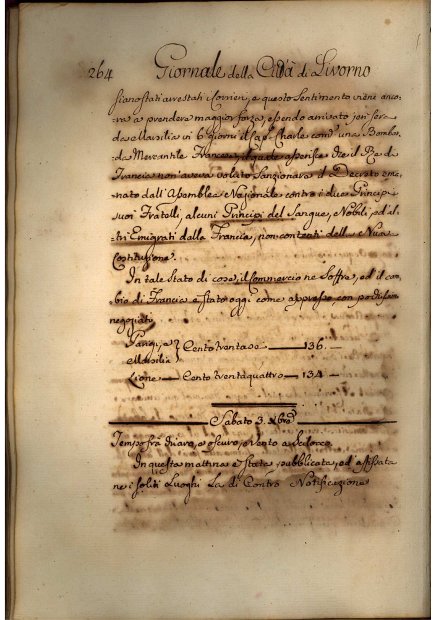 264 Giornale della Città di Livorno
siano stati arrestati i Corrieri, e questo Sentimento viene anco-
ra a prender maggior forza, essendo arrivato jeri sera
da Marsilia in 6 giorni il Cap. Charle cond. una Bombar-
da Mercantile Francese, il quale asserisce che il Re di
Francia non aveva voluto Sanzionare il Decreto ema-
nato dall'Assemblea Nazionale contro i due Principi
suoi Fratelli, alcuni Principi del Sangue, Nobili, ed al-
tri Emigrati dalla Francia, non contenti della Nuova
Costituzione.
In tale stato di cose, il Commercio ne Soffre, ed il cam-
bio di Francia è stato oggi come appresso con
negoziati
Parigi, e
Marsilia } Cento trentasei — 136. —
Lione — Cento trentaquattro — 134 —
Sabato 3. Xbre
Tempo frà chiaro, e oscuro, e vento a
In questa mattina è stata pubblicata, ed affissata
ne i soliti Luoghi La di Contro Notificazione